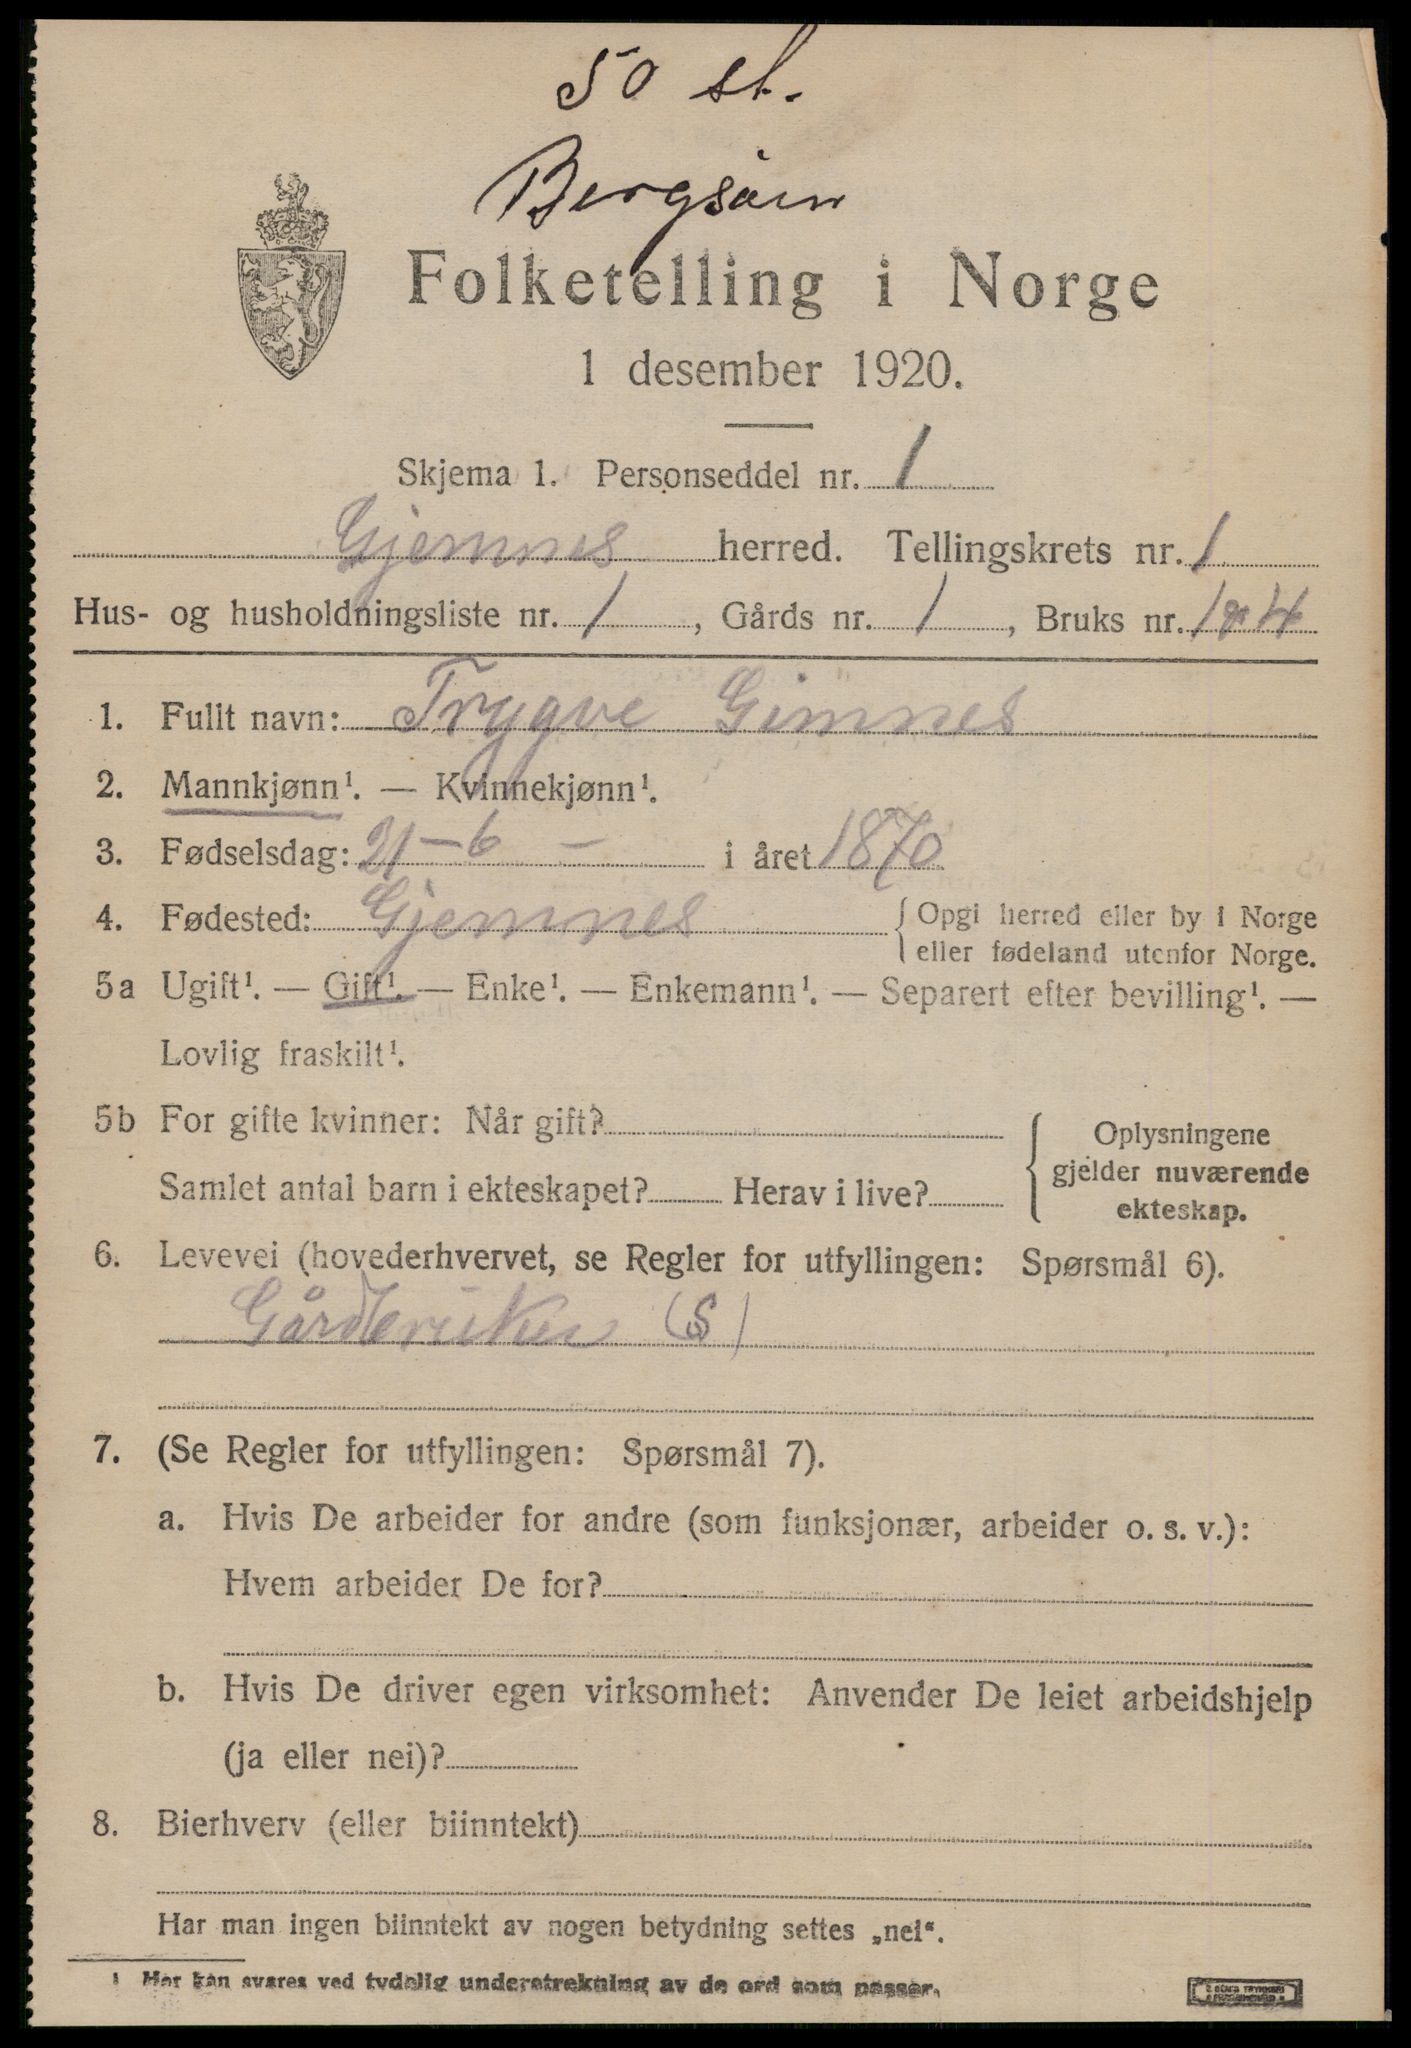 50 st.
Bergsöen
Folketelling i Norge
1 desember 1920.
Skjema 1. Personseddel nr. 1
Gjemnes herred. Tellingskrets nr. 1
Hus- og husholdningsliste nr. 1, Gårds nr. 1, Bruks nr. 1 4
1. Fullt navn: Trygve Gimnes
2. Mannkjønn¹. — Kvinnekjønn¹.
3. Fødselsdag: 21 – 6 – i året 1870
4. Fødested: Gjemnes { Opgi herred eller by i Norge
eller fødeland utenfor Norge.
5a Ugift¹. — Gift¹. — Enke¹. — Enkemann¹. — Separert efter bevilling¹. —
Lovlig fraskilt¹.
5b For gifte kvinner: Når gift?
Samlet antal barn i ekteskapet? Herav i live?
{ Oplysningene
gjelder nuværende
ekteskap.
6. Levevei (hovederhvervet, se Regler for utfyllingen: Spørsmål 6).
Gårdbruker (S)
7. (Se Regler for utfyllingen: Spørsmål 7).
a. Hvis De arbeider for andre (som funksjonær, arbeider o. s. v.):
Hvem arbeider De for?
b. Hvis De driver egen virksomhet: Anvender De leiet arbeidshjelp
(ja eller nei)?
8. Bierhverv (eller biinntekt)
Har man ingen biinntekt av nogen betydning settes „nei“.
1 Her kan svares ved tydelig understrekning av de ord som passer.